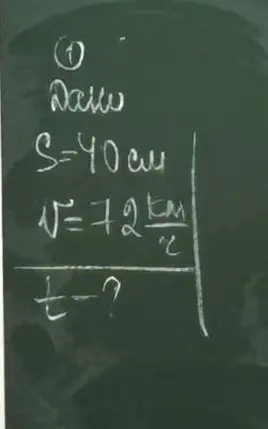 ①
Дано
S=40см
v=72 км/ч
t-?